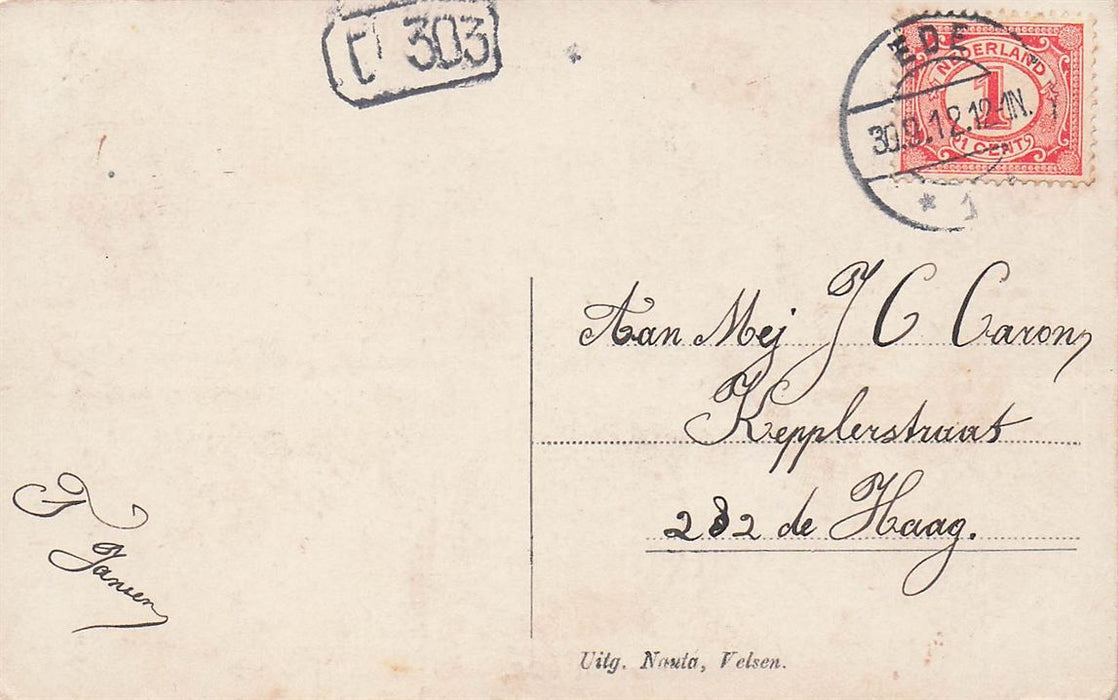 303
EDE
30.9.12.12-1N.
1
NEDERLAND
1
1 CENT
Aan Mej J C Caron,
Kepplerstraat
282 de Haag.
Jansen
Uitg. Nauta, Velsen.